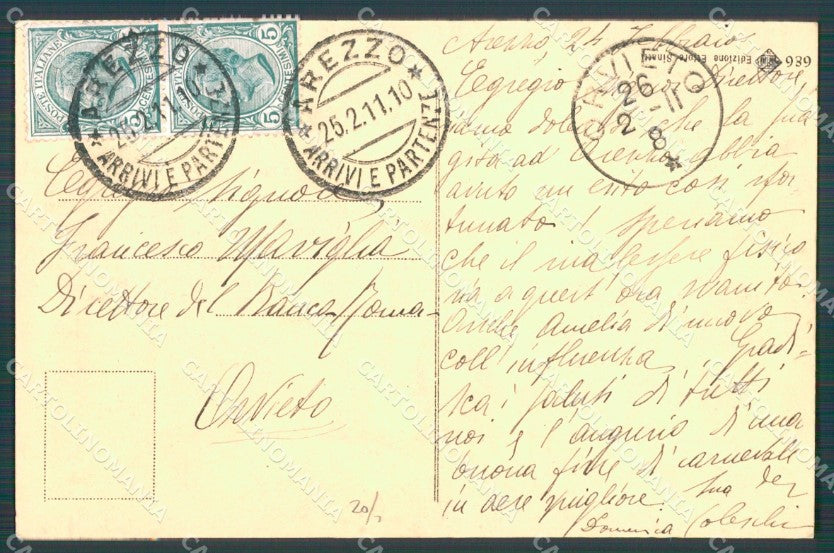 POSTE ITALIANE
5 CENTESIMI 5
5 CENTESIMI 5
AREZZO
25.2.11.10
ARRIVI E PARTENZE
AREZZO
25.2.11.10
ARRIVI E PARTENZE
Francesco Maviglia
Direttore del Banca Roma
Orvieto
20/
Arezzo, 24 Febbraio
989
Edizione Ettore
ORVIETO
26
2-11
8
Egregio Direttore,
che la sua
gita ad Arezzo abbia
avuto un esito così sfor-
tunato! Speriamo
che il malessere fisico
sia a quest'ora svanito.
Anche Amelia di nuovo
coll'influenza. Gradi-
sca i saluti di tutti
noi e l'augurio di una
buona fine di carnevale
in aere migliore. Sua dev
Domenica Coleschi
CARTOLINOMANIA